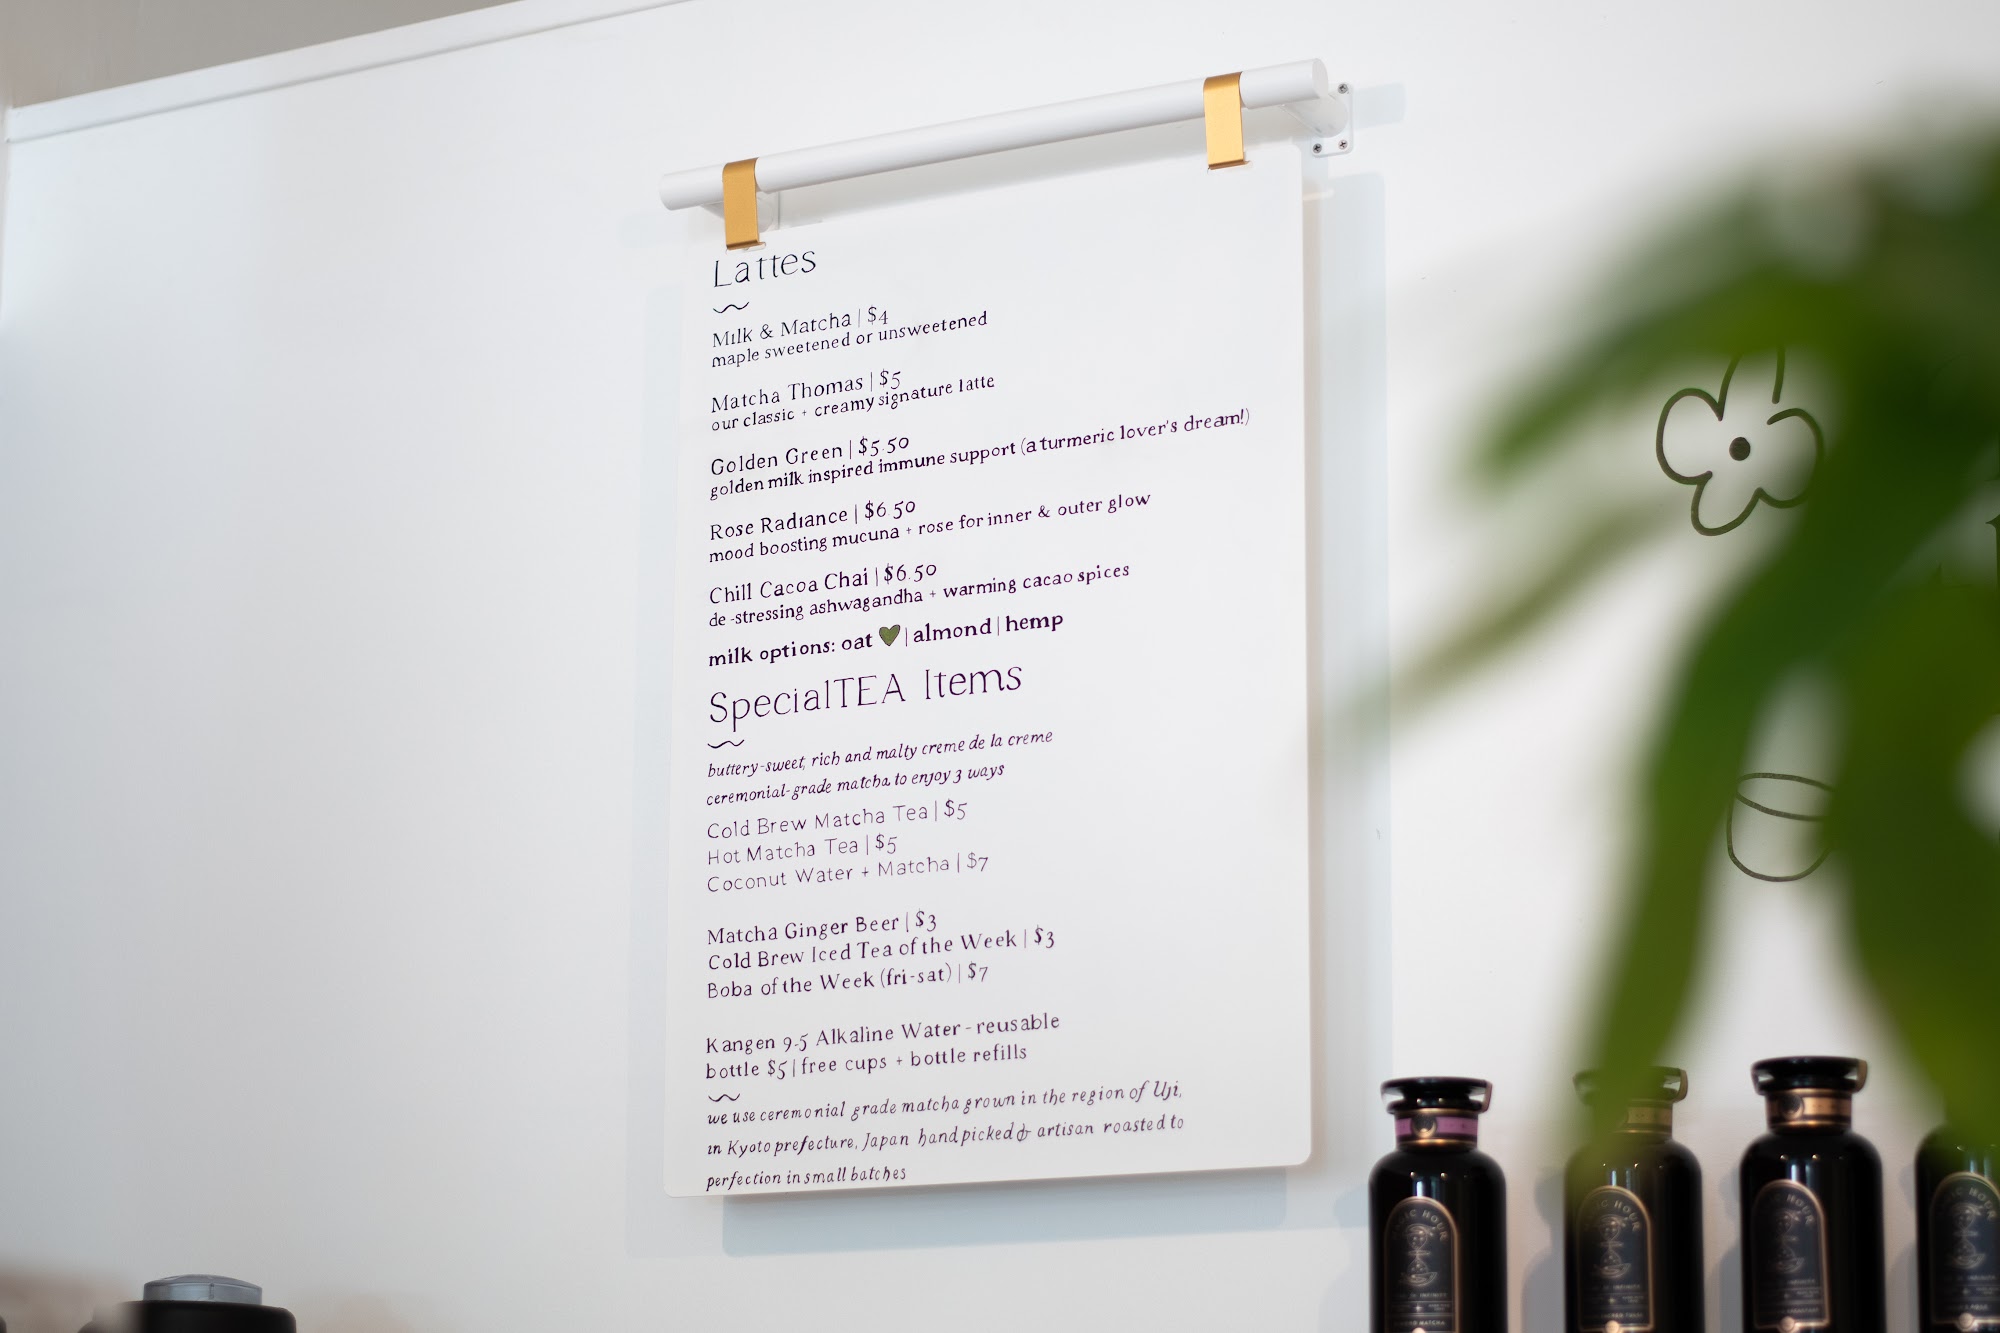 Lattes
Milk & Matcha | $4
maple sweetened or unsweetened
Matcha Thomas | $5
our classic + creamy signature latte
Golden Green | $5.50
golden milk inspired immune support (a turmeric lover's dream!)
Rose Radiance | $6.50
mood boosting mucuna + rose for inner & outer glow
Chill Cacoa Chai | $6.50
de-stressing ashwagandha + warming cacao spices
milk options: oat 💚 | almond | hemp
SpecialTEA Items
buttery-sweet, rich and malty creme de la creme
ceremonial-grade matcha to enjoy 3 ways
Cold Brew Matcha Tea | $5
Hot Matcha Tea | $5
Coconut Water + Matcha | $7
Matcha Ginger Beer | $3
Cold Brew Iced Tea of the Week | $3
Boba of the Week (fri-sat) | $7
Kangen 9.5 Alkaline Water - reusable
bottle $5 | free cups + bottle refills
we use ceremonial grade matcha grown in the region of Uji,
in Kyoto prefecture, Japan hand picked & artisan roasted to
perfection in small batches